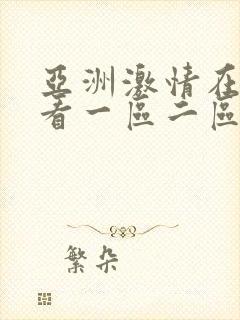 亞洲激情在
看一區二區
繁朵